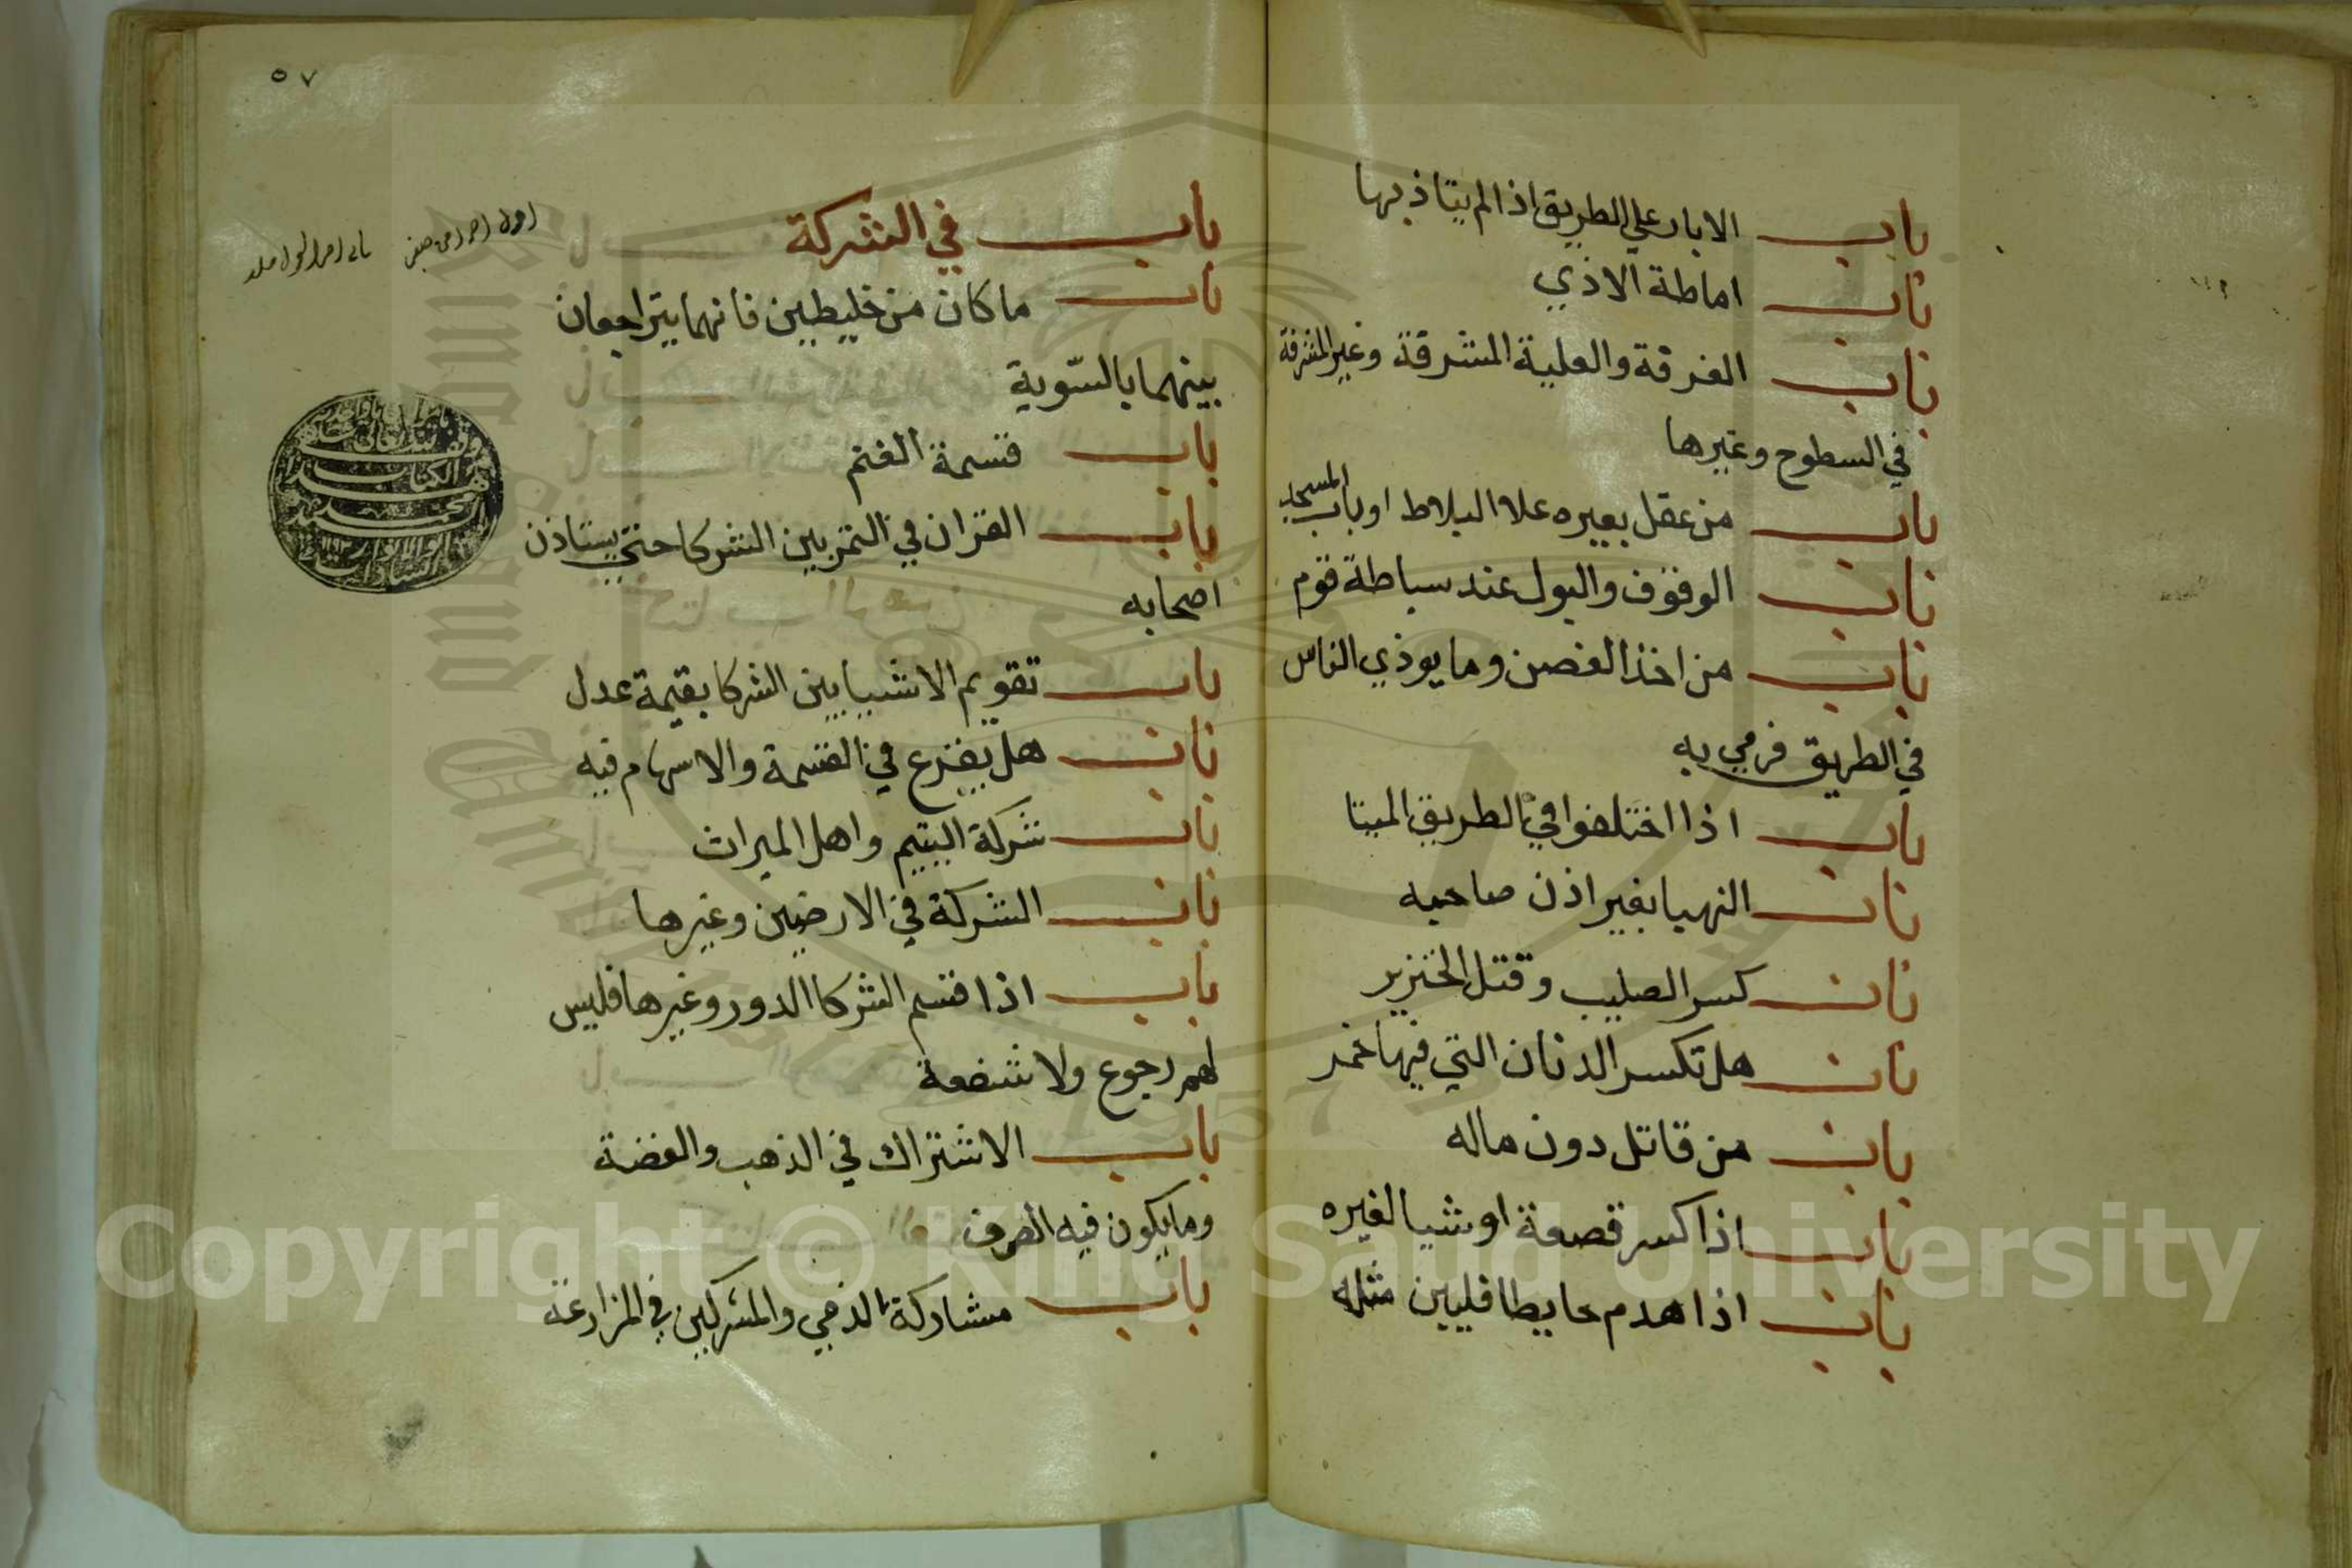 باب الابار علي الطريق اذا لم يتاذ بها
باب اماطة الاذي
باب الغرفة والعلية المشرفة وغير المشرفة
في السطوح وغيرها
باب من عقل بعيره علا البلاط او باب المسجد
باب الوقوف والبول عند سباطة قوم
باب من اخذ الغصن وما يوذي الناس
في الطريق فرمي به
باب اذا اختلفوا في الطريق الميتا
باب النهبا بغير اذن صاحبه
باب كسر الصليب وقتل الخنزير
باب هل تكسر الدنان التي فيها خمر
باب من قاتل دون ماله
باب اذا كسر قصعة او شيا لغيره
باب اذا هدم حايطا فليبن مثله
٥٧
باب في الشركة
باب ما كان من خليطين فانهما يتراجعان
بينهما بالسّوية
باب قسمة الغنم
باب القران في التمر بين الشركا حتي يستاذن
اصحابه
باب تقويم الاشيا بين الشركا بقيمة عدل
باب هل يقرع في القسمة والاسهام فيه
باب شركة اليتيم واهل الميراث
باب الشركة في الارضين وغيرها
باب اذا اقتسم الشركا الدور وغيرها فليس
لهم رجوع ولا شفعة
باب الاشتراك في الذهب والفضة
وما يكون فيه الصرف
باب مشاركة الذمي والمشركين في المزارعة
Copyright © King Saud University
King Saud University
1957